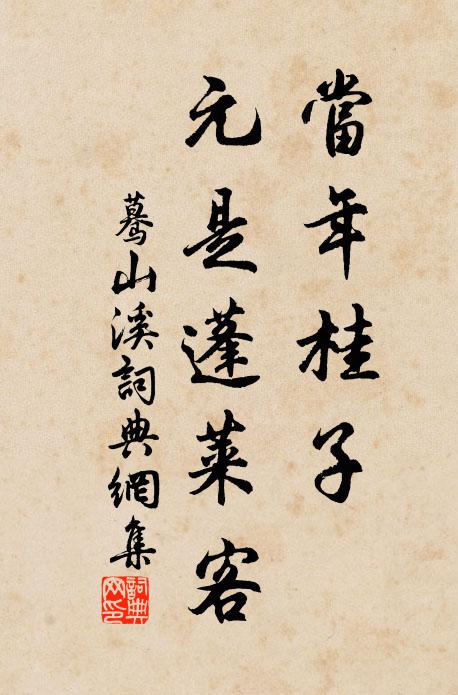 當年桂子
元是蓬萊客
驀山溪詞典網集
詞典
网印